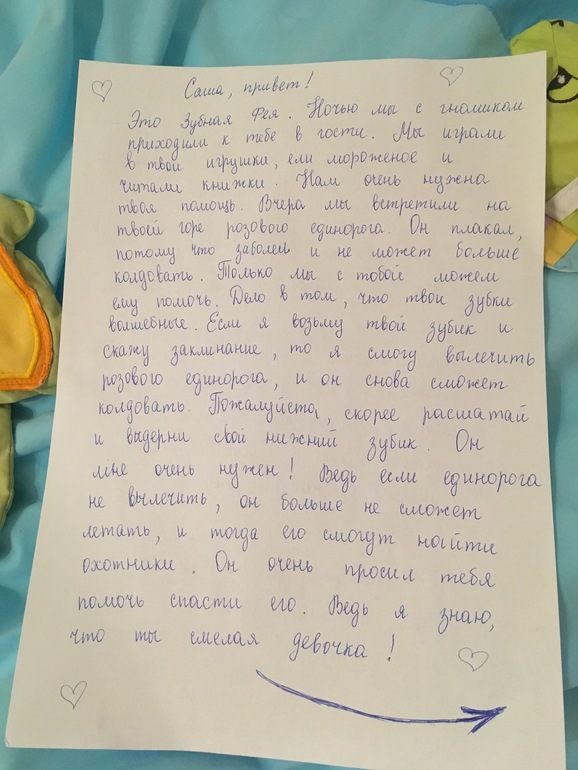 Саша, привет!
Это Зубная Фея. Ночью мы с гномиком
приходили к тебе в гости. Мы играли
в твои игрушки, ели мороженое и
читали книжки. Нам очень нужна
твоя помощь. Вчера мы встретили на
твоей горе розового единорога. Он плакал,
потому что заболел и не может больше
колдовать. Только мы с тобой можем
ему помочь. Дело в том, что твои зубки
волшебные. Если я возьму твой зубик и
скажу заклинание, то я смогу вылечить
розового единорога, и он снова сможет
колдовать. Пожалуйста, скорее расшатай
и выдерни свой нижний зубик. Он
мне очень нужен! Ведь если единорога
не вылечить, он больше не сможет
летать, и тогда его смогут найти
охотники. Он очень просил тебя
помочь спасти его. Ведь я знаю,
что ты смелая девочка!